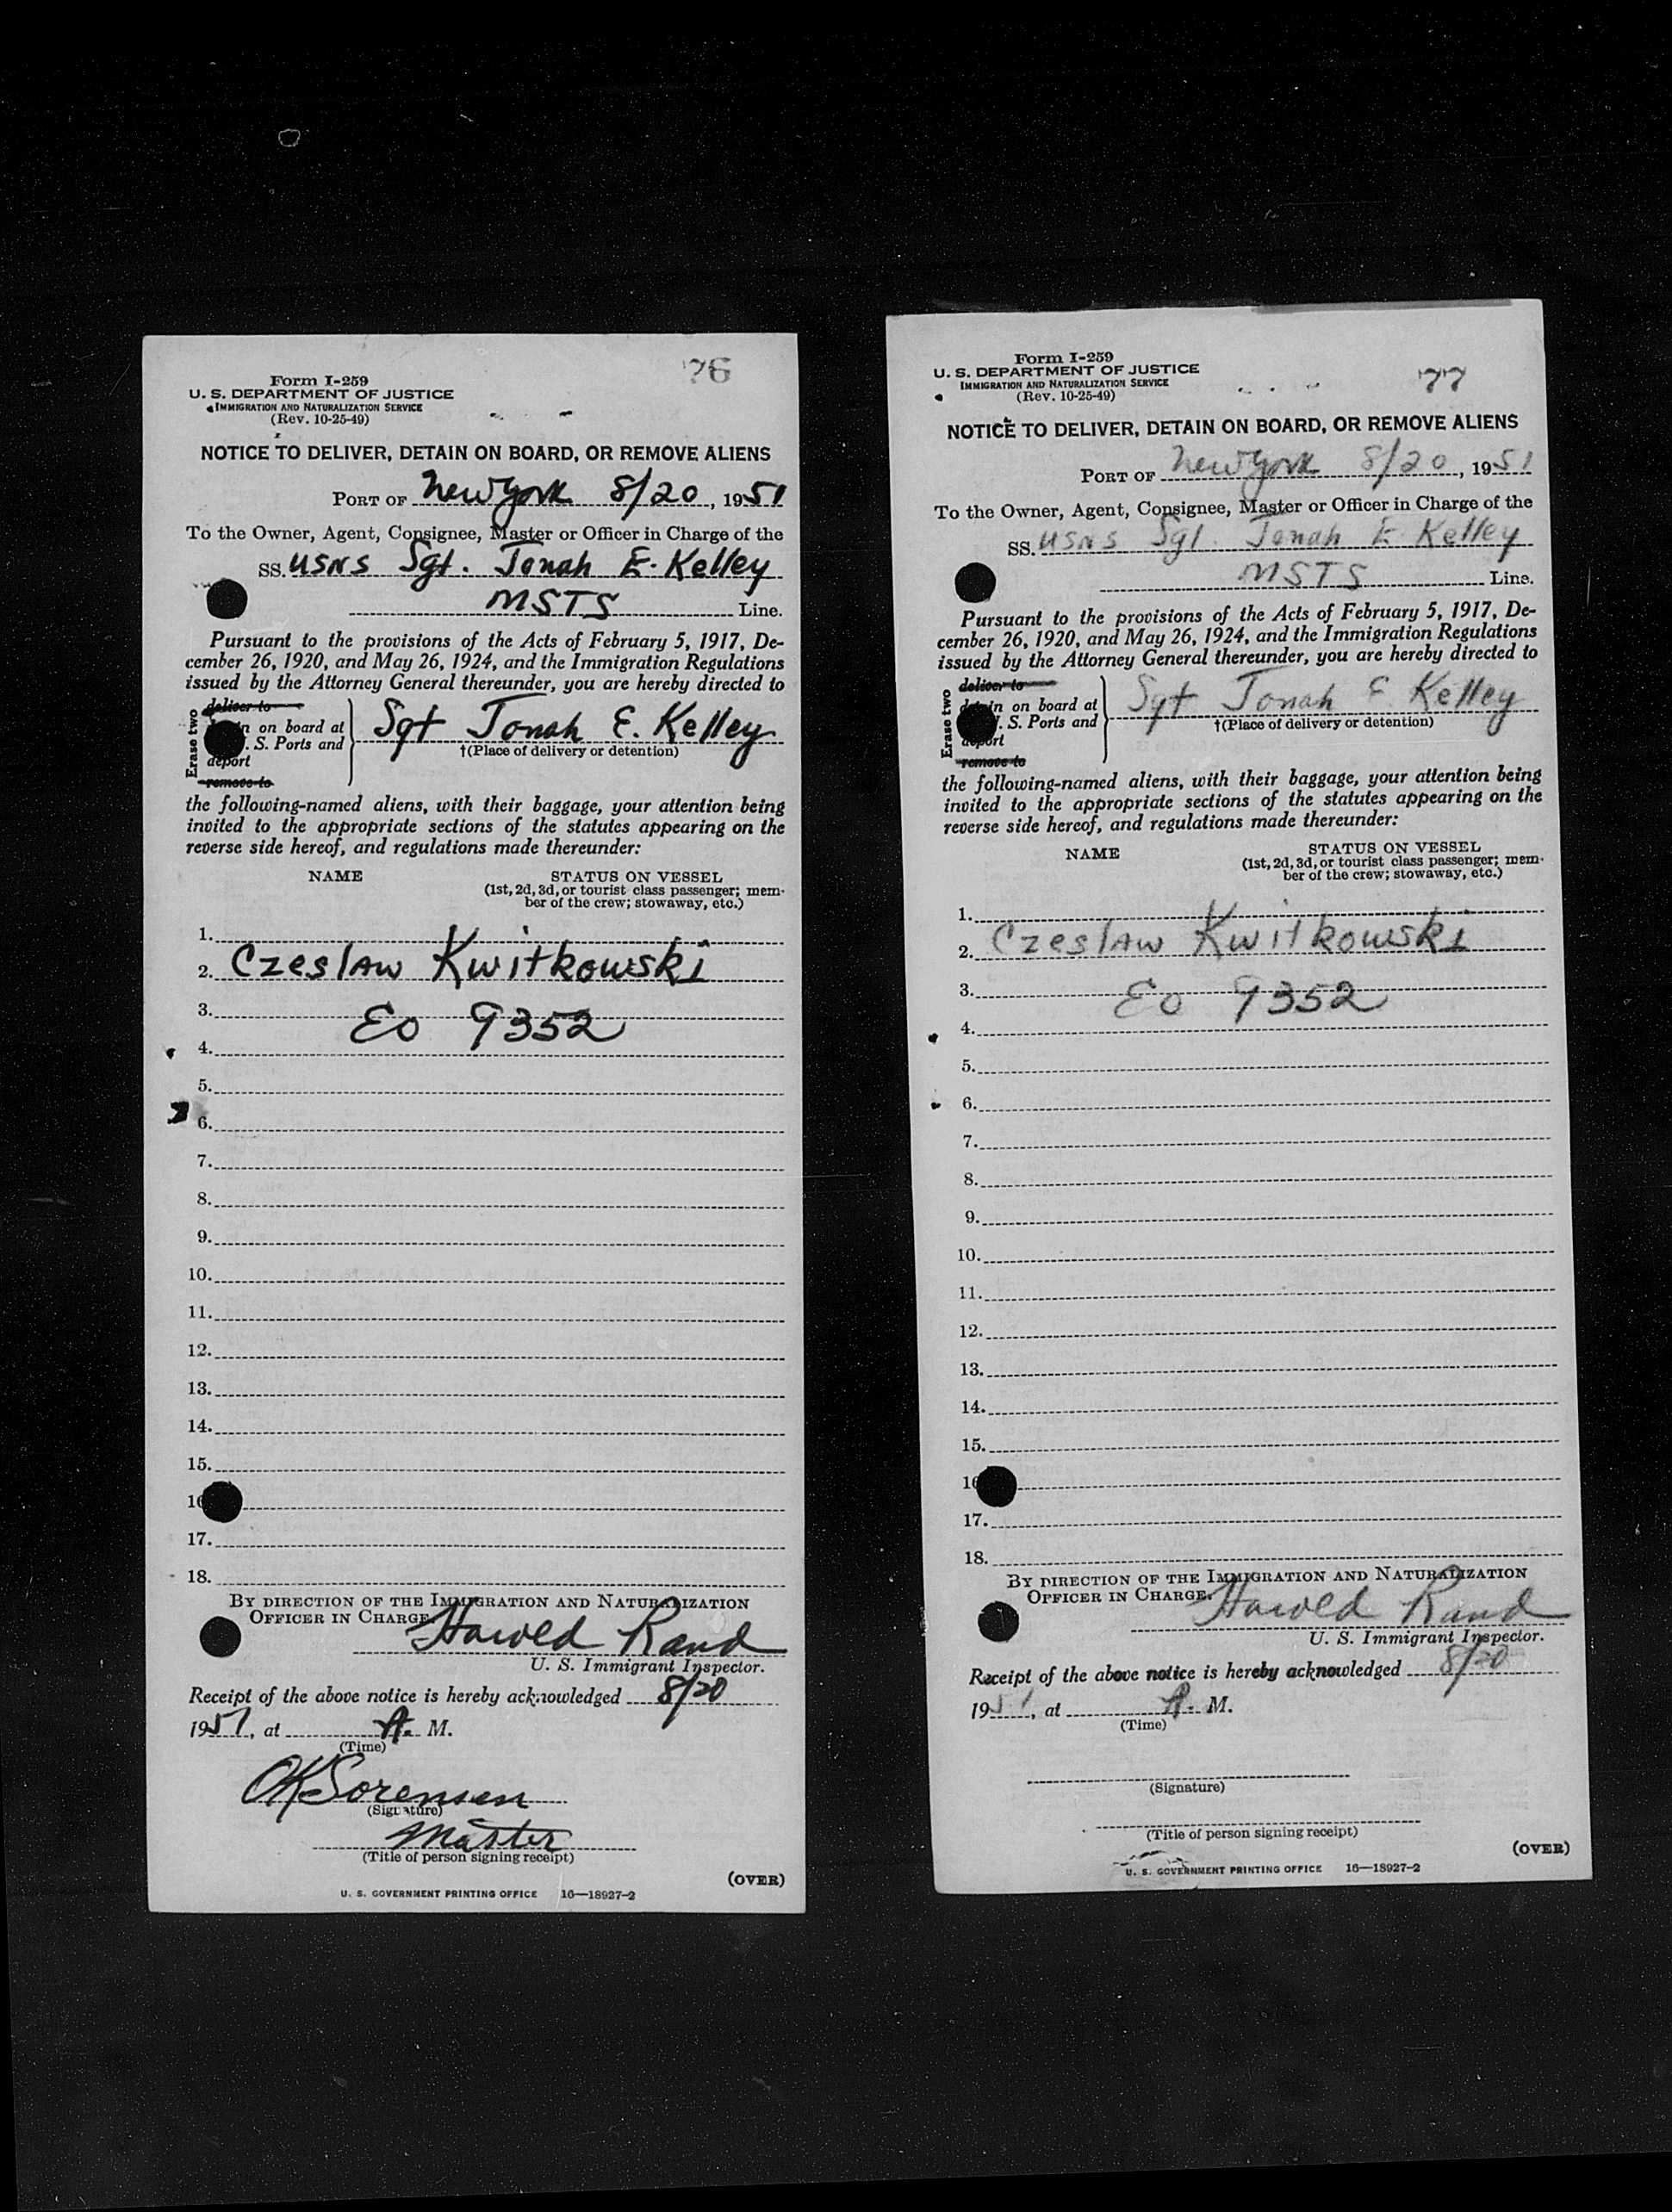 76
Form I-259
U. S. DEPARTMENT OF JUSTICE
IMMIGRATION AND NATURALIZATION SERVICE
(Rev. 10-25-49)
NOTICE TO DELIVER, DETAIN ON BOARD, OR REMOVE ALIENS
PORT OF New York 8/20, 1951
To the Owner, Agent, Consignee, Master or Officer in Charge of the
SS. USNS Sgt. Jonah E. Kelley
MSTS Line.
Pursuant to the provisions of the Acts of February 5, 1917, De-
cember 26, 1920, and May 26, 1924, and the Immigration Regulations
issued by the Attorney General thereunder, you are hereby directed to
Erase two
deliver to
on board at
S. Ports and
deport
remove to
Sgt Jonah E. Kelley
†(Place of delivery or detention)
the following-named aliens, with their baggage, your attention being
invited to the appropriate sections of the statutes appearing on the
reverse side hereof, and regulations made thereunder:
NAME STATUS ON VESSEL
(1st, 2d, 3d, or tourist class passenger; mem-
ber of the crew; stowaway, etc.)
1.
2. Czeslaw Kwitkowski
3. EO 9352
4.
5.
6.
7.
8.
9.
10.
11.
12.
13.
14.
15.
16
17.
18.
BY DIRECTION OF THE IMMIGRATION AND NATURALIZATION
OFFICER IN CHARGE.
Harold Rand
U. S. Immigrant Inspector.
Receipt of the above notice is hereby acknowledged 8/20
1951, at A. M.
(Time)
OK Sorensen
(Signature)
Master
(Title of person signing receipt)
(OVER)
U. S. GOVERNMENT PRINTING OFFICE 16—18927-2
77
Form I-259
U. S. DEPARTMENT OF JUSTICE
IMMIGRATION AND NATURALIZATION SERVICE
(Rev. 10-25-49)
NOTICE TO DELIVER, DETAIN ON BOARD, OR REMOVE ALIENS
PORT OF New York 8/20, 1951
To the Owner, Agent, Consignee, Master or Officer in Charge of the
SS. USNS Sgt. Jonah E Kelley
MSTS Line.
Pursuant to the provisions of the Acts of February 5, 1917, De-
cember 26, 1920, and May 26, 1924, and the Immigration Regulations
issued by the Attorney General thereunder, you are hereby directed to
Erase two
deliver to
on board at
S. Ports and
deport
remove to
Sgt Jonah E Kelley
†(Place of delivery or detention)
the following-named aliens, with their baggage, your attention being
invited to the appropriate sections of the statutes appearing on the
reverse side hereof, and regulations made thereunder:
NAME STATUS ON VESSEL
(1st, 2d, 3d, or tourist class passenger; mem-
ber of the crew; stowaway, etc.)
1.
2. Czeslaw Kwitkowski
3. EO 9352
4.
5.
6.
7.
8.
9.
10.
11.
12.
13.
14.
15.
16
17.
18.
BY DIRECTION OF THE IMMIGRATION AND NATURALIZATION
OFFICER IN CHARGE.
Harold Rand
U. S. Immigrant Inspector.
Receipt of the above notice is hereby acknowledged 8/20
1951, at A. M.
(Time)
(Signature)
(Title of person signing receipt)
(OVER)
U. S. GOVERNMENT PRINTING OFFICE 16—18927-2